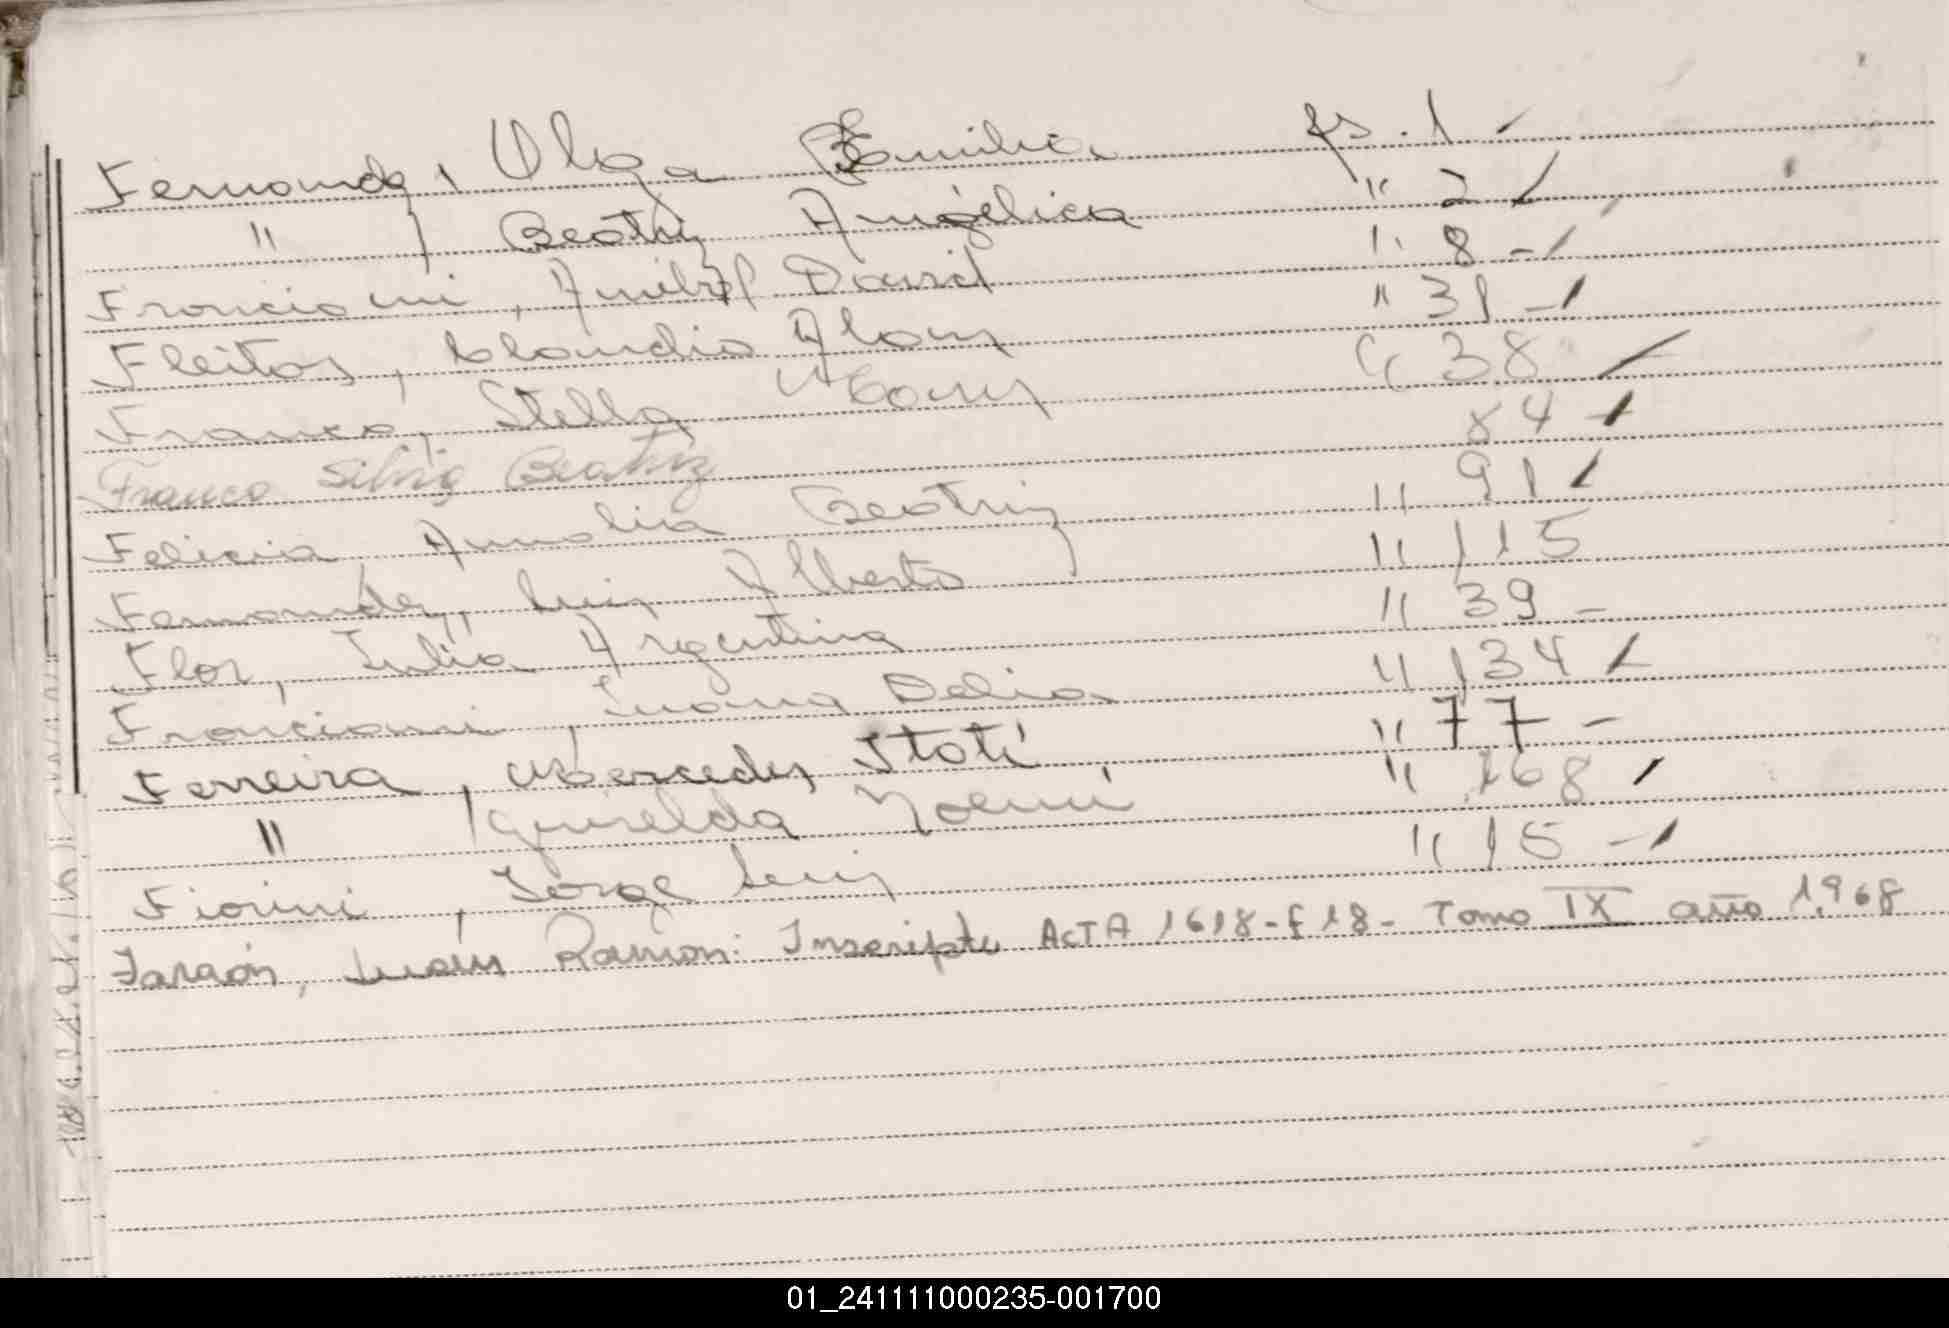 Fernandez, Olga Emilia fs. 1
" , Beatriz Angélica " 2
Francioni, Anibal David " 8
Fleitas, Claudio Alan " 31
Franco, Stella Mary " 38
Franco Silvia Beatriz 84
Felicia, Analia Beatriz " 91
Fernandez, Luis Alberto " 115
Flor, Julia Argentina " 39
Francioni, Juana Delia " 134
Ferreira, Mercedes Itatí " 77
" , Griselda Noemí " 168
Fiorini, Jorge Luis " 15
Farzón, Juan Ramón: Inscripta ActA 1618-f 18- Tomo IX año 1.968
01_241111000235-001700